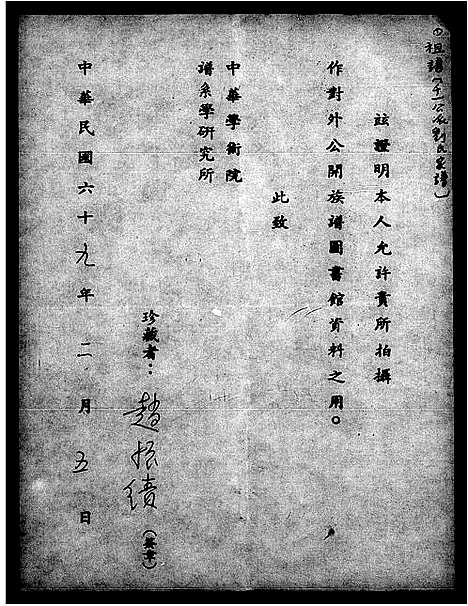 祖譜(千一公派劉氏家譜)
茲證明本人允許貴所拍攝
作對外公開族譜圖書館資料之用。
此致
中華學術院
譜系學研究所
珍藏者：趙振績(簽章)
中華民國六十九年二月五日